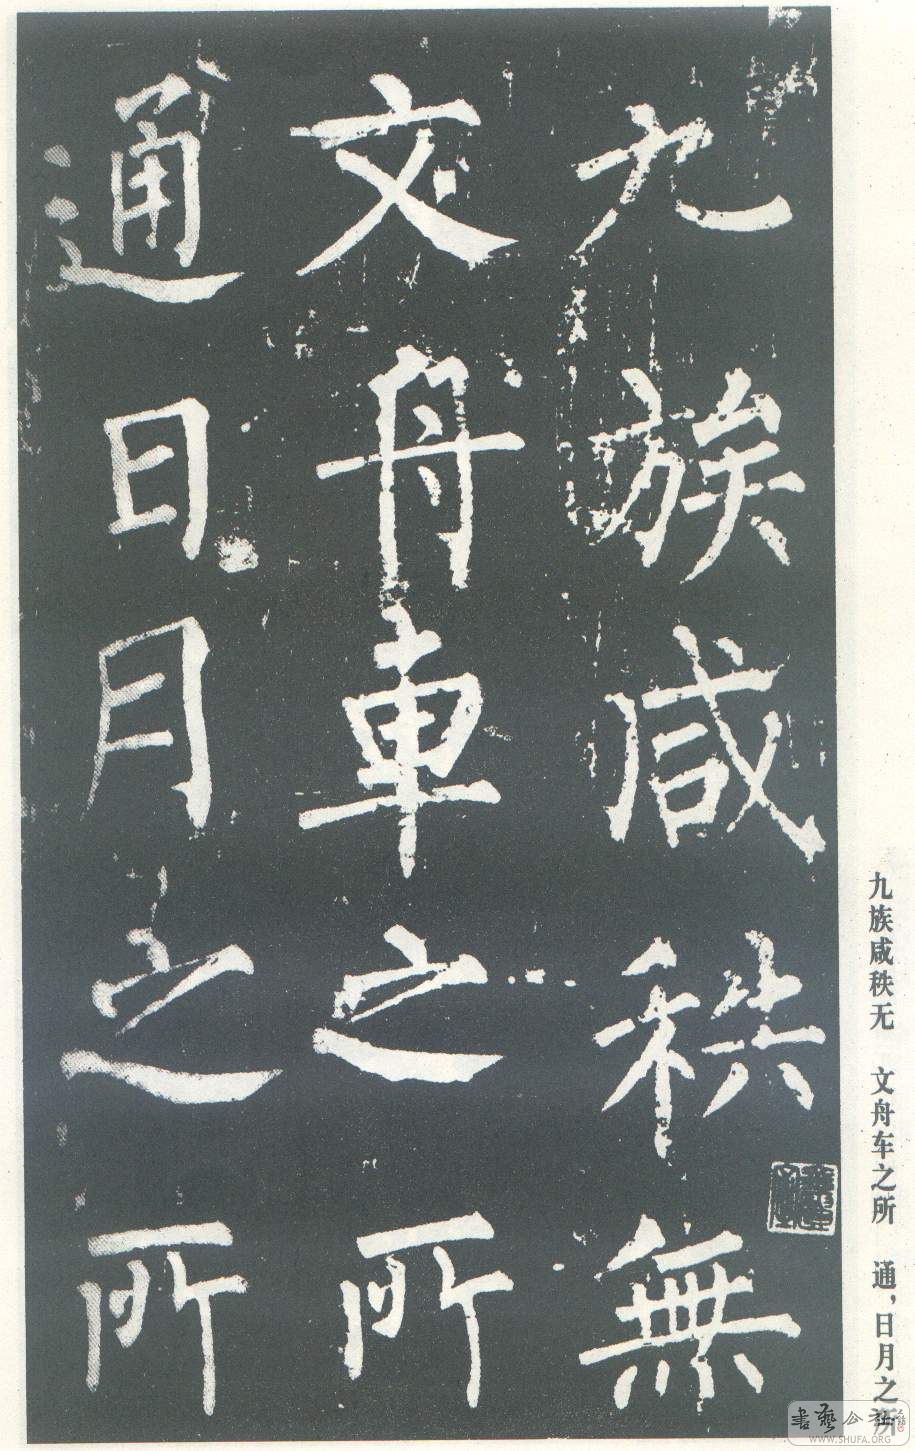 九族咸秩無
文舟車之所
通日月之所
九族咸秩无　文舟车之所　通，日月之所
WWW.SHUFA.ORG